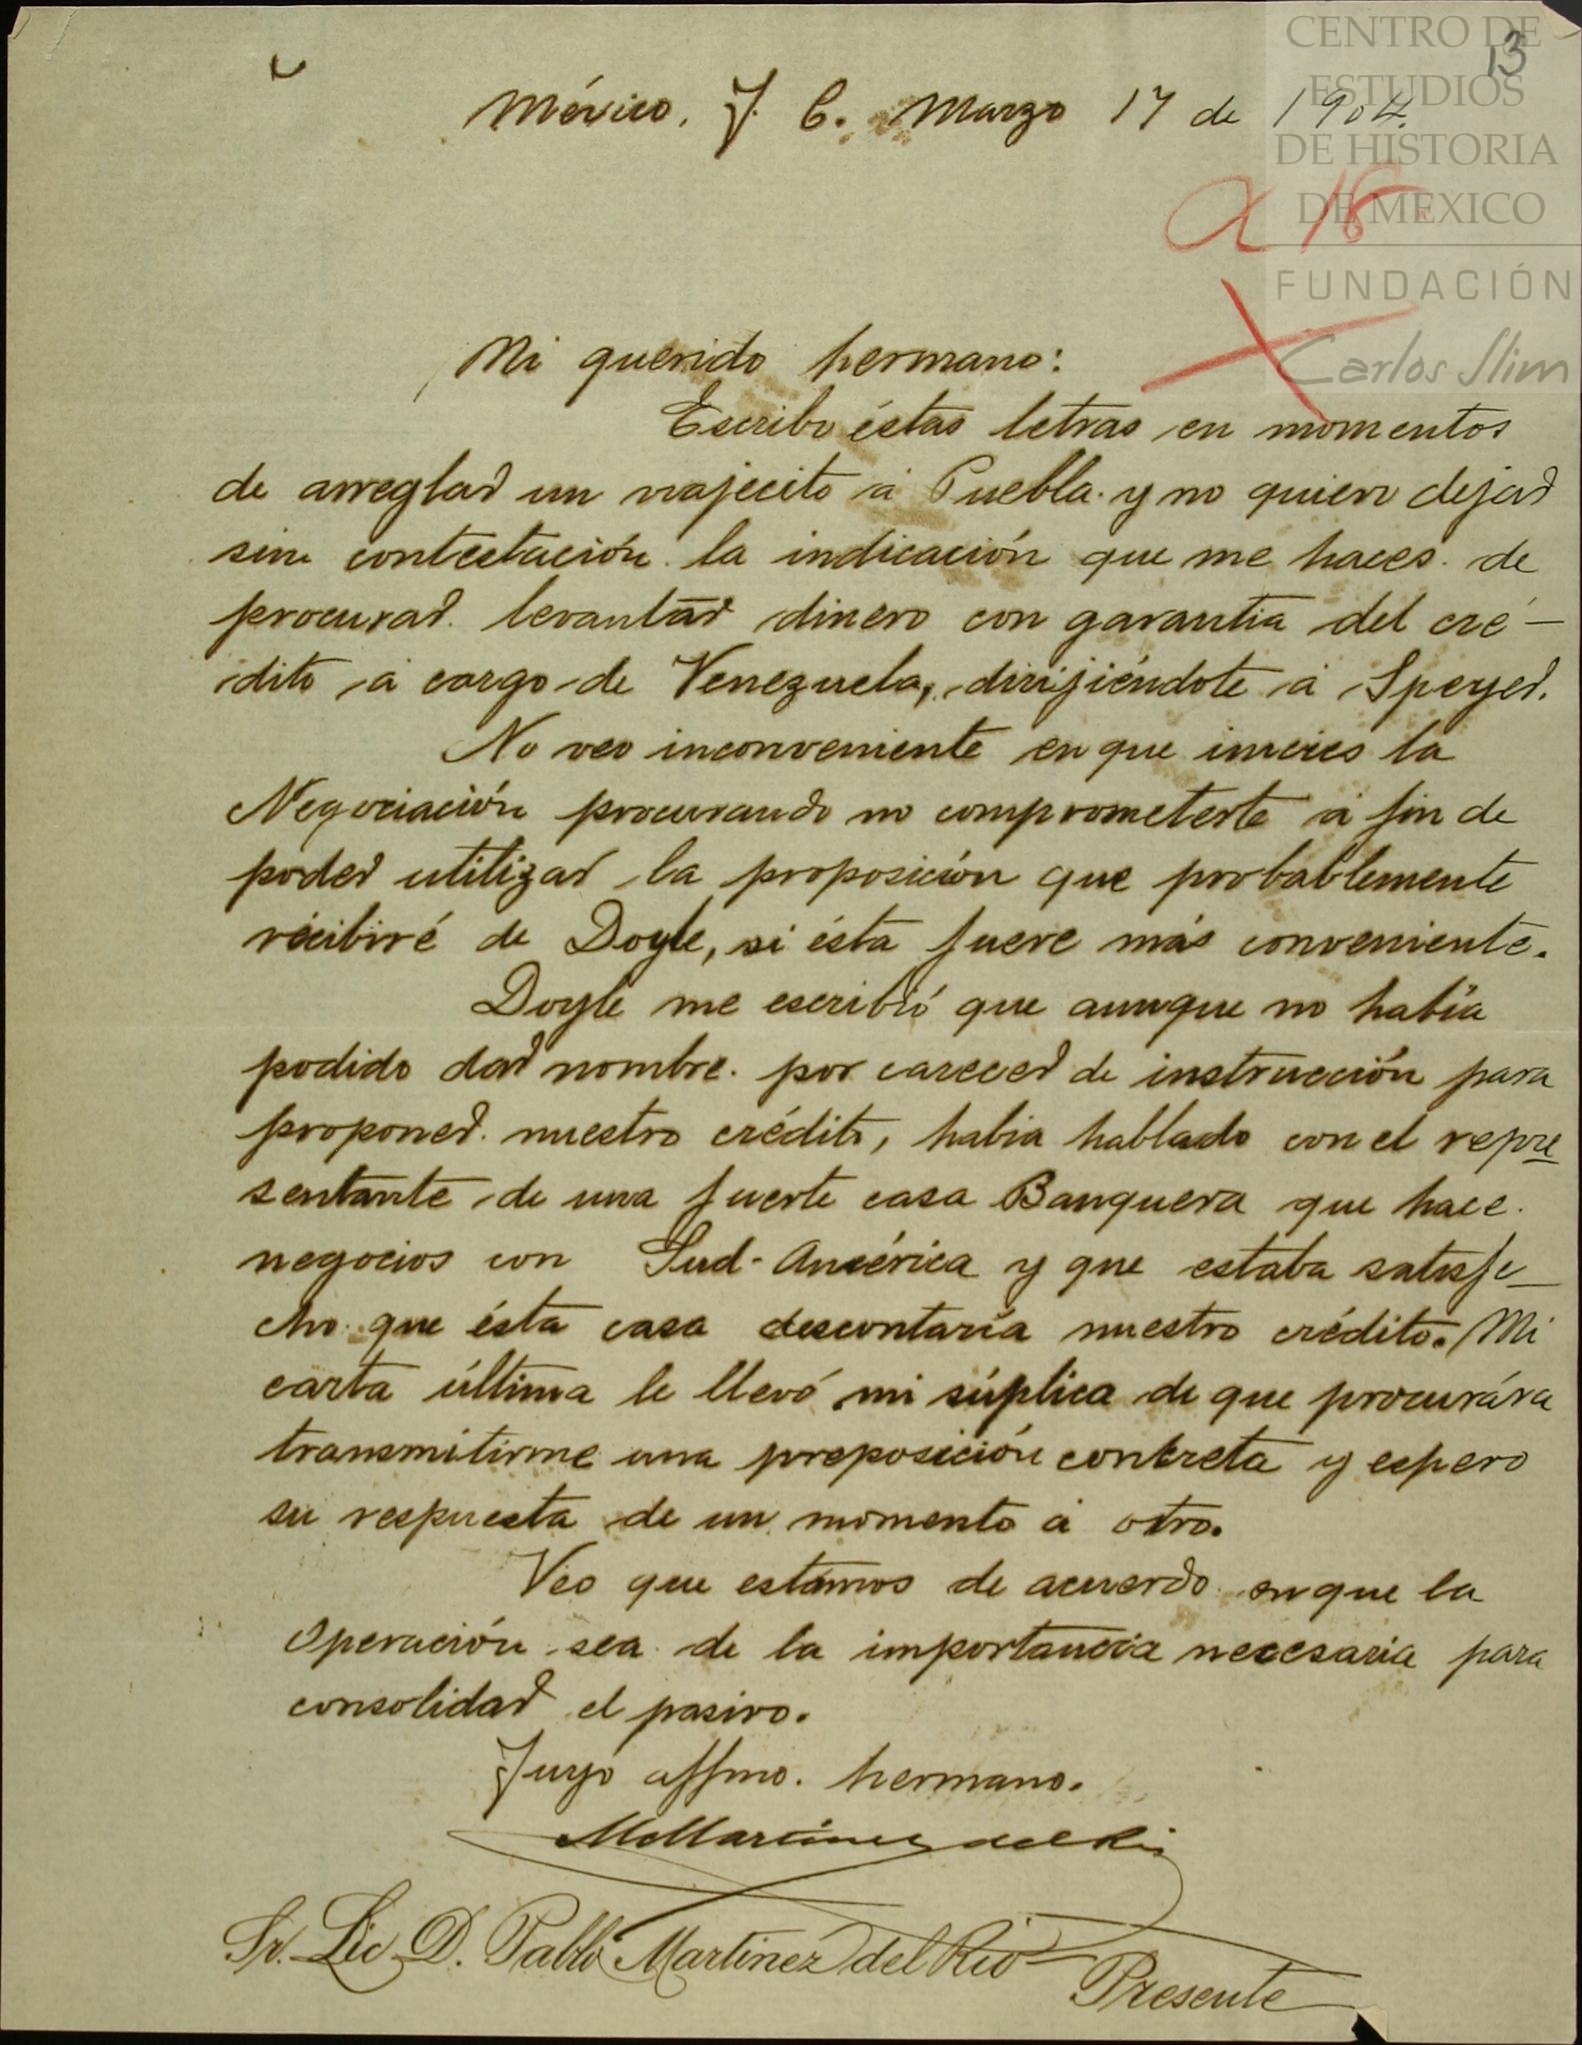 13
México, J. C. Marzo 17 de 1904.
a 18
Mi querido hermano:
Escribo éstas letras en momentos
de arreglar un viajecito á Puebla y no quiero dejar
sin contestación la indicación que me haces de
procurar levantar dinero con garantia del cré-
dito á cargo de Venezuela, dirijiéndote á Speyer.
No veo inconveniente en que inicies la
Negociación procurando no comprometerte á fin de
poder utilizar la proposición que probablemente
recibiré de Doyle, si ésta fuere más conveniente.
Doyle me escribió que aunque no había
podido dar nombre por carecer de instrucción para
proponer nuestro crédito, habia hablado con el repre
sentante de una fuerte casa Banquera que hace
negocios con Sud-América y que estaba satisfe-
cho que ésta casa descontaría nuestro crédito. Mi
carta última le llevó mi súplica de que procurára
transmitirme una preposición contreta y espero
su respuesta de un momento á otro.
Veo que estámos de acuerdo en que la
Operación sea de la importancia necesaria para
consolidar el pasivo.
Tuyo affmo. hermano.
M Martinez del Rio
Sr. Lic. D. Pablo Martinez del Rio
Presente
CENTRO DE
ESTUDIOS
DE HISTORIA
DE MEXICO
FUNDACIÓN
Carlos Slim